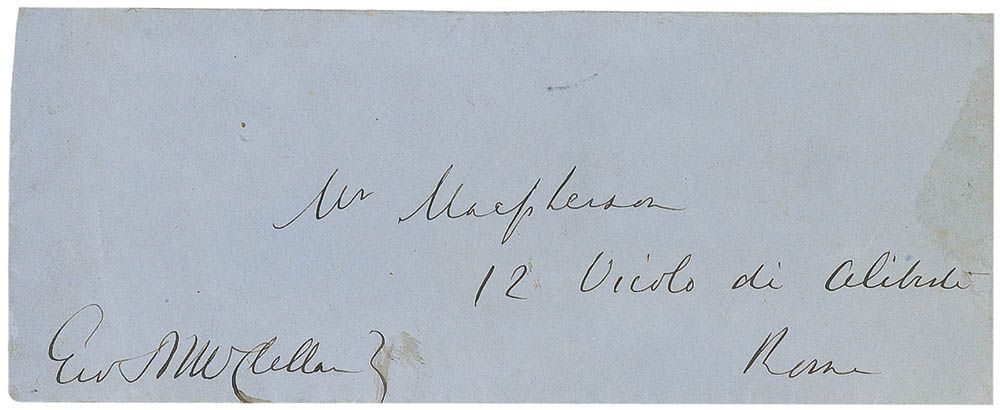 Mr Macpherson
12 Vicolo di Alibert
Rome
Geo B McClellan